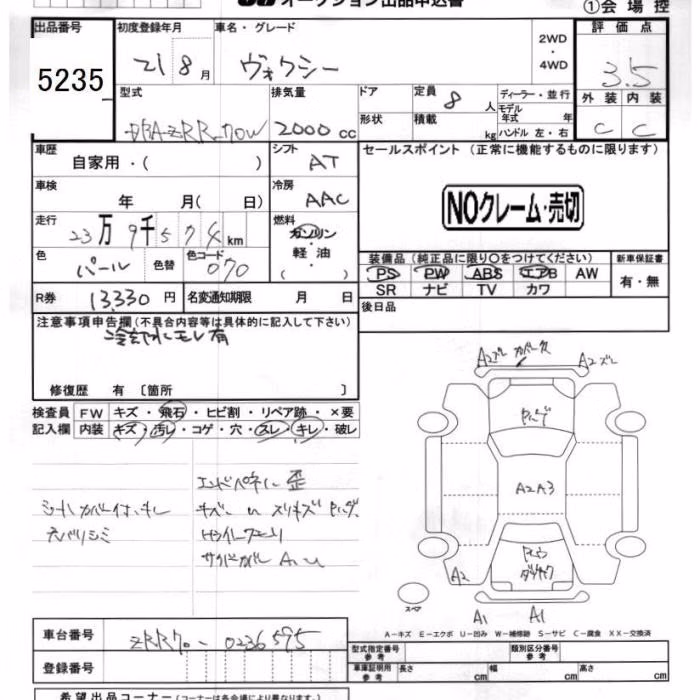 オークション出品申込書
①会場控
出品番号
5235
初度登録年月
21 8月
車名・グレード
ヴォクシー
2WD
・
4WD
評価点
3.5
外装 内装
C C
型式
DBA-ZRR70W
排気量
2000 cc
ドア
形状
定員 8 人
積載 kg
ディーラー・並行
モデル年式 年
ハンドル 左・右
車歴
自家用・( )
シフト
AT
セールスポイント (正常に機能するものに限ります)
NOクレーム・売切
車検
年 月( 日)
冷房
AAC
走行
23万 9千 5 7 4 km
燃料
ガソリン
軽油
( )
色
パール
色替
色コード
070
装備品 (純正品に限り○をつけてください)
PS PW ABS エアB AW
SR ナビ TV カワ
新車保証書
有・無
R券 13,330円
名変通知期限 月 日
後日品
注意事項申告欄 (不具合内容等は具体的に記入して下さい)
冷却水モレ有
修復歴 有 〔箇所 〕
検査員記入欄
FW キズ・飛石・ヒビ割・リペア跡・×要
内装 キズ・汚レ・コゲ・穴・スレ・キレ・破レ
エンドパネル歪
A2
A2
A2A3
A2
A1
A1
スペア
A−キズ E−エクボ U−凹み W−補修跡 S−サビ C−腐食 XX−交換済
車台番号
ZRR70-0236595
登録番号
型式指定番号
参考
類別区分番号
参考
車庫証明用
参考
長さ cm 幅 cm 高さ cm
希望出品コーナー (コーナーは各会場により異なります。)